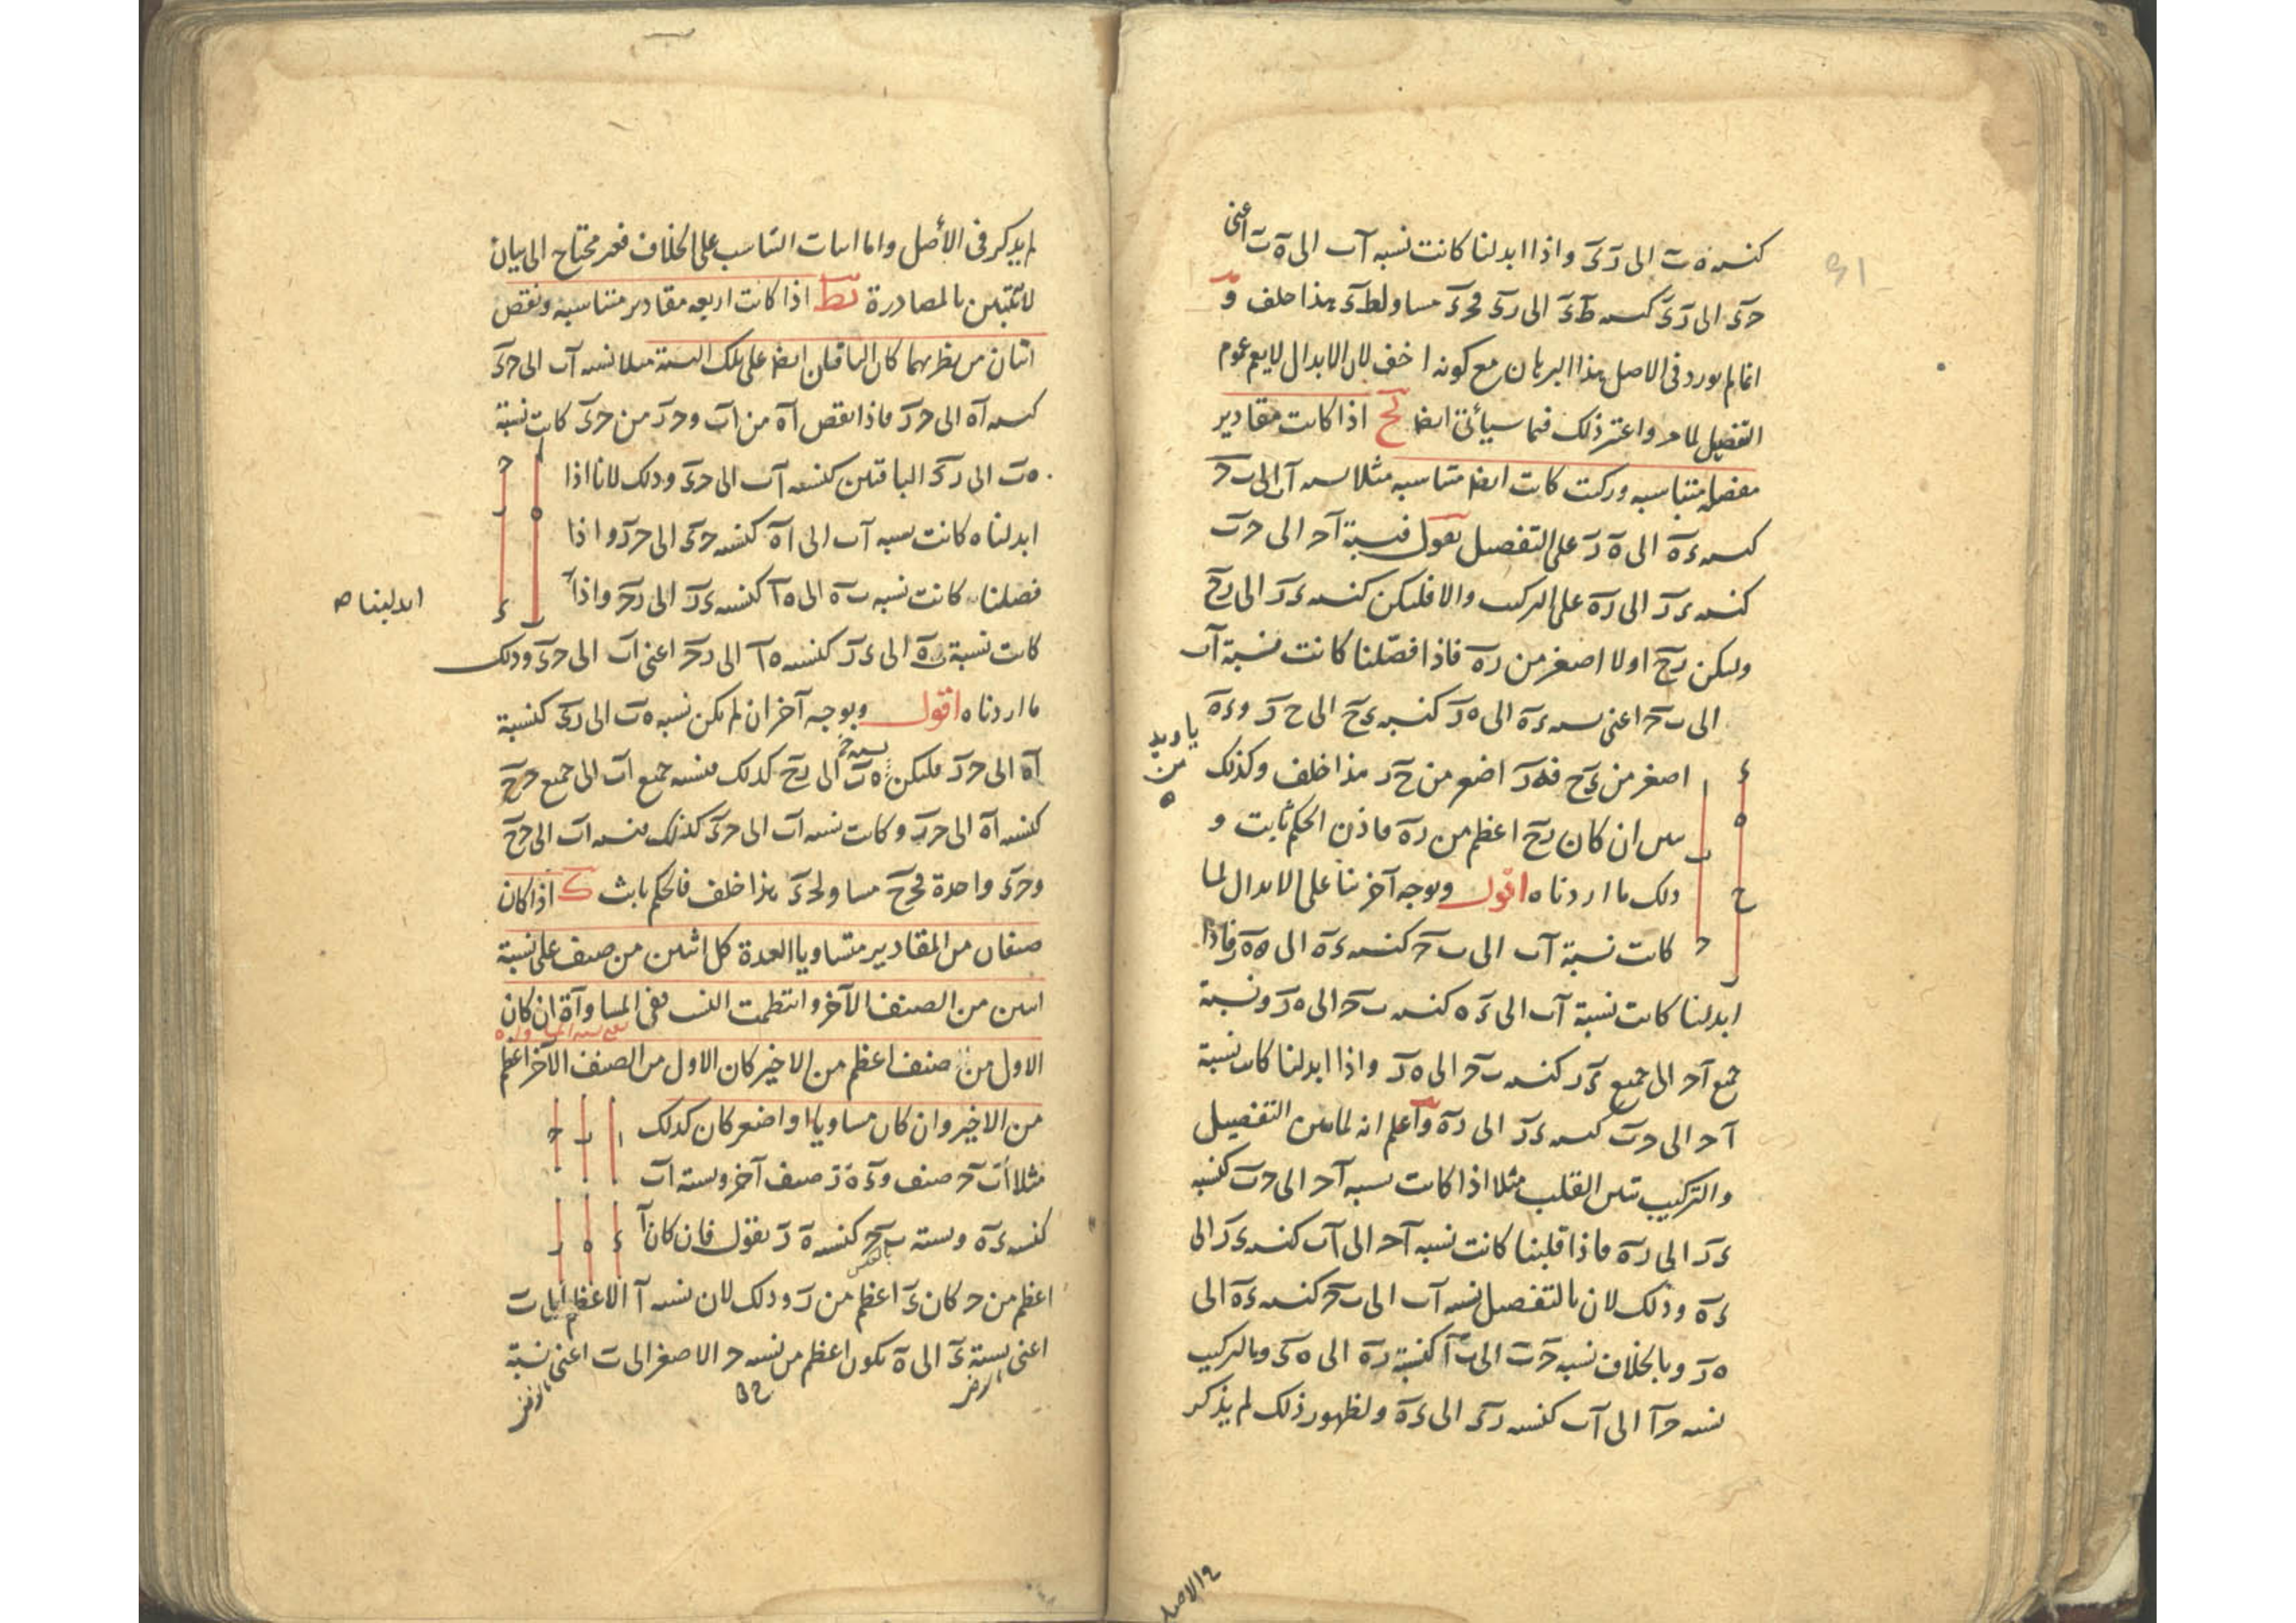 كنسبه ه ب الى ر ء واذا ابدلنا كانت نسبه ا ب الى ه ب اعنى
ح ء الى ر ء كنسبه ط ء الى ر ء فح ء مساو لط ء هذا خلف و
انما لم يورد فى الاصل هذا البرهان مع كونه اخف لان الابدال لا يعم عموم
التفصيل لما مر واعتبر ذلك فيما سيأتى ايضا يح اذا كانت مقادير
مفصله متناسبه وركبت كانت ايضا متناسبه مثلا نسبه ا ب الى ب ح
كنسبه ء ه الى ه ر على التفصيل نقول فنسبة ا ح الى ح ب
كنسبه ء ر الى ر ه على التركيب والا فليكن كنسبه ء ر الى ر ح
وليكن ر ح اولا اصغر من ر ه فاذا فصّلنا كانت نسبة ا ب
الى ب ح اعنى نسبه ء ه الى ه ر كنسبه ء ح الى ح ر و ء ه
اصغر من ء ح فه ر اصغر من ح ر هذا خلف وكذلك
ان كان ر ح اعظم من ر ه فاذن الحكم ثابت و
ذلك ما اردناه اقول وبوجه آخر بناء على الابدال لما
كانت نسبة ا ب الى ب ح كنسبه ء ه الى ه ر فاذا
ابدلنا كانت نسبة ا ب الى ء ه كنسبه ب ح الى ه ر ونسبة
جميع ا ح الى جميع ء ر كنسبه ب ح الى ه ر واذا ابدلنا كانت نسبة
ا ح الى ح ب كنسبه ء ر الى ر ه واعلم انه لما بين التفصيل
والتركيب تبين القلب مثلا اذا كانت نسبه ا ح الى ح ب كنسبه
ء ر الى ر ه فاذا قلبنا كانت نسبه ا ح الى ا ب كنسبه ء ر الى
ء ه وذلك لان بالتفصيل نسبه ا ب الى ب ح كنسبه ء ه الى
ه ر وبالخلاف نسبه ح ب الى ب ا كنسبة ر ه الى ه ء وبالتركيب
نسبه ح ا الى ا ب كنسبه ر ء الى ء ه ولظهور ذلك لم يذكر
لم يذكر فى الأصل واما اثبات التناسب على الخلاف فغير محتاج الى بيان
لانه تبين بالمصادرة يط اذا كانت اربعه مقادير متناسبه ونقص
اثنان من نظيريهما كان الباقيان ايضا على تلك النسبة مثلا نسبه ا ب الى ح ء
كنسبه ا ه الى ح ر فاذا نقص ا ه من ا ب و ح ر من ح ء كانت نسبة
ه ب الى ر ء الباقيين كنسبه ا ب الى ح ء وذلك لانا اذا
ابدلناه كانت نسبه ا ب الى ا ه كنسبه ح ء الى ح ر واذا
فصلنا كانت نسبه ب ه الى ه ا كنسبه ء ر الى ر ح واذا
ابدلنا
كانت نسبة ب ه الى ء ر كنسبه ه ا الى ر ح اعنى ا ب الى ح ء وذلك
ما اردناه اقول وبوجه آخر ان لم يكن نسبه ه ب الى ر ء كنسبة
ا ه الى ح ر فليكن ه ب الى ر ح كذلك فنسبه جميع ا ب الى جميع ح ح
كنسبه ا ه الى ح ر وكانت نسبه ا ب الى ح ء كذلك فنسبه ا ب الى ح ح
و ح ء واحدة فح ح مساو لح ء هذا خلف فالحكم ثابت ك اذا كان
صنفان من المقادير متساويا العدة كل اثنين من صنف على نسبة
اثنين من الصنف الآخر وانتظمت النسب ففى المساواة ان كان
الاول من صنف اعظم من الاخير كان الاول من الصنف الآخر اعظم
من الاخير وان كان مساويا او اصغر كان كذلك
مثلا ا ب ح صنف و ء ه ر صنف آخر ونسبة ا ب
كنسبه ء ه ونسبة ب ح كنسبه ه ر نقول فان كان ا
اعظم من ح كان ء اعظم من ر وذلك لان نسبه ا الاعظم الى ب
اعنى نسبة ء الى ه يكون اعظم من نسبه ح الاصغر الى ب اعنى نسبة